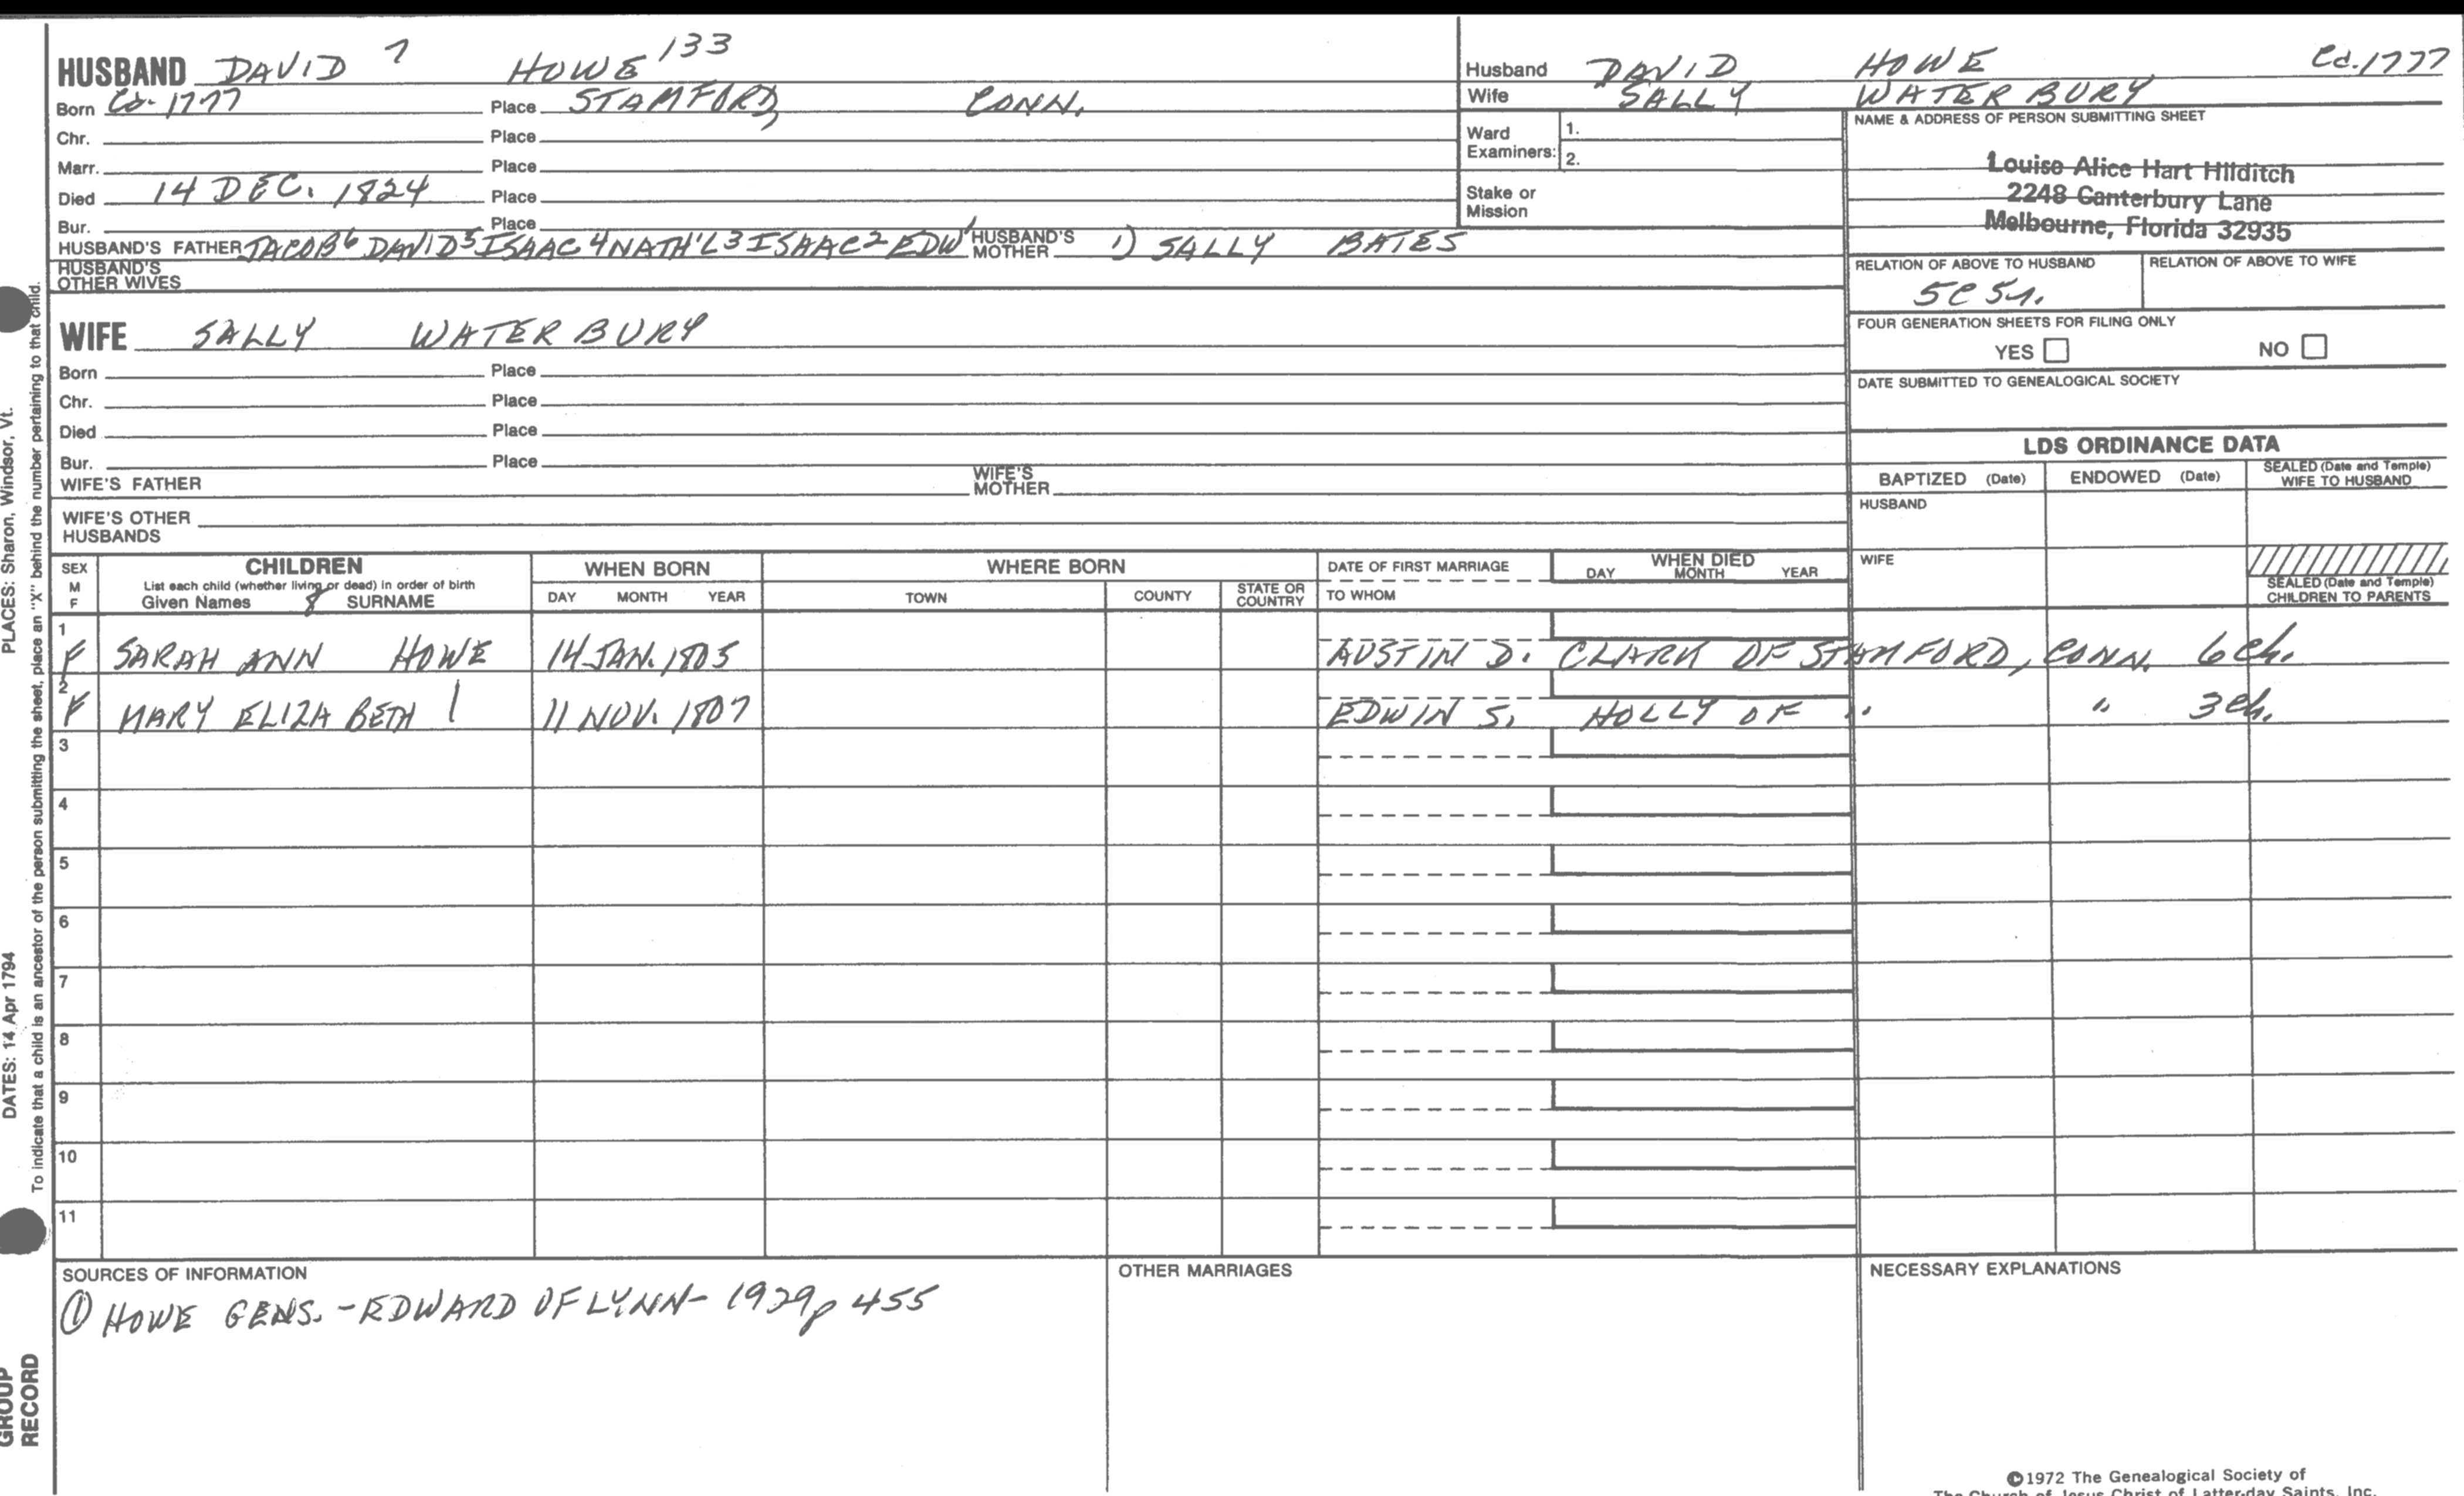 HUSBAND DAVID 7 HOWE 133
Born Ca. 1777 Place STAMFORD, CONN.
Chr. Place
Marr. Place
Died 14 DEC. 1824 Place
Bur. Place
HUSBAND'S FATHER JACOB6 DAVID5 ISAAC4 NATH'L3 ISAAC2 EDW1 HUSBAND'S MOTHER 1) SALLY BATES
HUSBAND'S OTHER WIVES
WIFE SALLY WATERBURY
Born Place
Chr. Place
Died Place
Bur. Place
WIFE'S FATHER WIFE'S MOTHER
WIFE'S OTHER HUSBANDS
Husband DAVID HOWE Ca. 1777
Wife SALLY WATERBURY
Ward Examiners: 1.
2.
Stake or Mission
NAME & ADDRESS OF PERSON SUBMITTING SHEET
Louise Alice Hart Hilditch
2248 Canterbury Lane
Melbourne, Florida 32935
RELATION OF ABOVE TO HUSBAND RELATION OF ABOVE TO WIFE
5C5r.
FOUR GENERATION SHEETS FOR FILING ONLY
YES NO
DATE SUBMITTED TO GENEALOGICAL SOCIETY
LDS ORDINANCE DATA
BAPTIZED (Date) ENDOWED (Date) SEALED (Date and Temple) WIFE TO HUSBAND
HUSBAND
WIFE
SEALED (Date and Temple) CHILDREN TO PARENTS
SEX M F
CHILDREN
List each child (whether living or dead) in order of birth
Given Names 8 SURNAME
WHEN BORN
DAY MONTH YEAR
WHERE BORN
TOWN COUNTY STATE OR COUNTRY
DATE OF FIRST MARRIAGE
TO WHOM
WHEN DIED
DAY MONTH YEAR
1 F SARAH ANN HOWE 14 JAN. 1805 AUSTIN D. CLARK OF STAMFORD, CONN. 6 ch.
2 F MARY ELIZABETH 11 NOV. 1807 EDWIN S. HOLLY OF " " 3 ch.
3
4
5
6
7
8
9
10
11
SOURCES OF INFORMATION
① HOWE GENS. - EDWARD OF LYNN - 1929 p 455
OTHER MARRIAGES
NECESSARY EXPLANATIONS
©1972 The Genealogical Society of
The Church of Jesus Christ of Latter-day Saints, Inc.
PLACES: Sharon, Windsor, Vt.
DATES: 14 Apr 1794
To indicate that a child is an ancestor of the person submitting the sheet, place an "X" behind the number pertaining to that child.
GROUP
RECORD